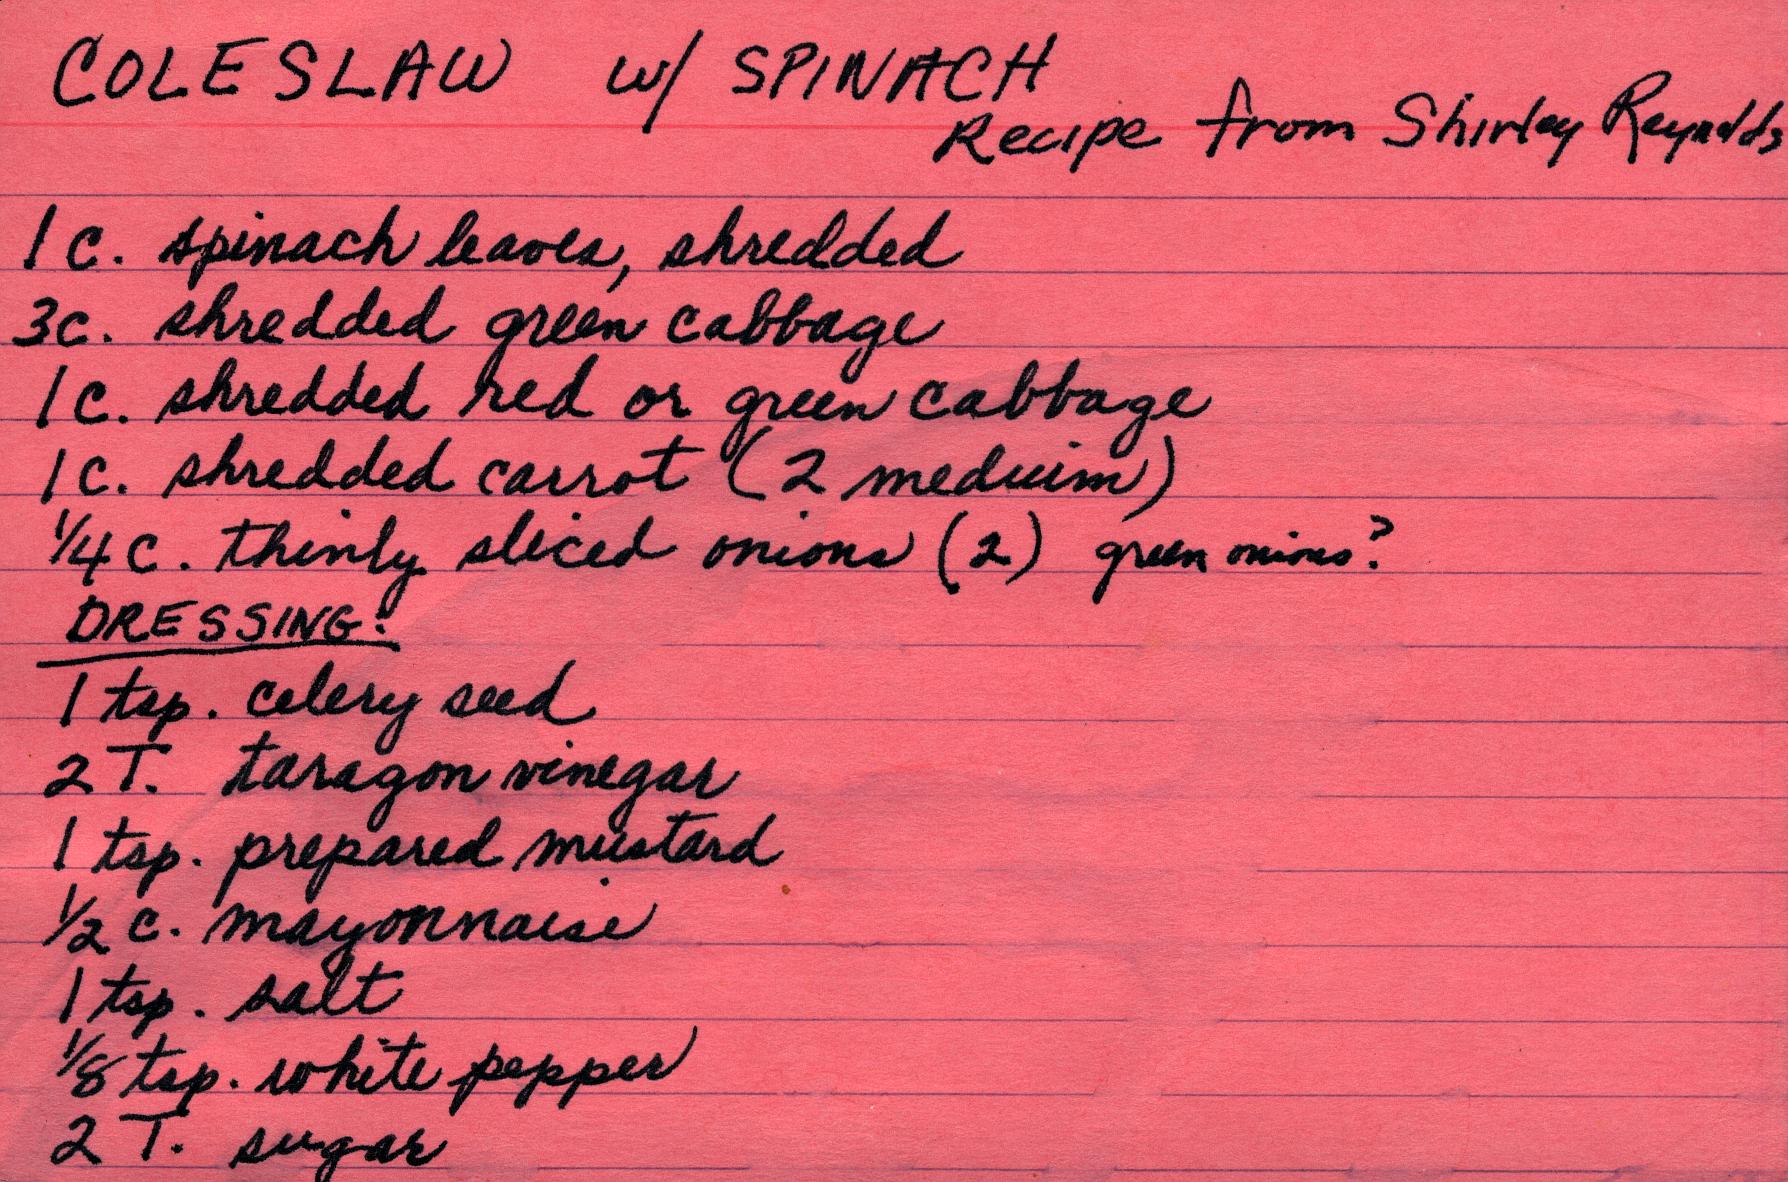 COLESLAW w/ SPINACH
Recipe from Shirley Reynolds
1 c. spinach leaves, shredded
3c. shredded green cabbage
1 c. shredded red or green cabbage
1 c. shredded carrot (2 meduim)
1/4 c. thinly sliced onions (2) green onions?
DRESSING:
1 tsp. celery seed
2 T. taragon vinegar
1 tsp. prepared mustard
1/2 c. mayonnaise
1 tsp. salt
1/8 tsp. white pepper
2 T. sugar